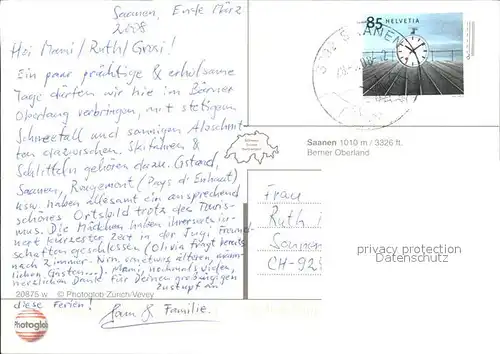 Saanen, Ende März
2008
Hoi Mami / Ruth / Grosi!
Ein paar prächtige & erholsame
Tage dürfen wir hie im Bärner
Oberland verbringen, mit stetigem
Schneefall und sonnigen Abschnit-
ten dazwischen. Skifahren &
Schlitteln gehören dazu. Gstaad,
Saanen, Rougemont (Pays d'Enhaut)
usw. haben allesamt ein ansprechend
schönes Ortsbild trotz des Touris-
mus. Die Mädchen haben ihrerseits
kürzester Zeit in der Jugi Freund-
schaften geschlossen (Olivia fragt bereits
nach Zimmer-Nrn. von etwas älteren, männ-
lichen Gästen...). Mami, nochmals vielen,
herzlichen Dank für Deinen grosszügigen
Zustupf an
diese Ferien!
& Familie.
20875 w © Photoglob Zürich/Vevey
Photoglob
85 HELVETIA
SAANEN
Saanen 1010 m / 3326 ft.
Berner Oberland
Frau
Ruth
CH-92
privacy protection
Datenschutz